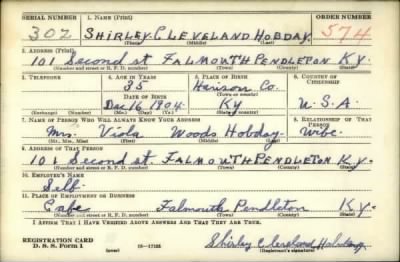 SERIAL NUMBER 1. NAME (Print) ORDER NUMBER
302 SHIRLEY CLEVELAND HOBDAY 574
(First) (Middle) (Last)
2. ADDRESS (Print)
101 Second st. FALMOUTH PENDLETON KY.
(Number and street or R. F. D. number) (Town) (County) (State)
3. TELEPHONE 4. AGE IN YEARS 5. PLACE OF BIRTH 6. COUNTRY OF CITIZENSHIP
35 Harison Co.
DATE OF BIRTH (Town or county)
Dec 16 1904 Ky U.S.A
(Exchange) (Number) (Mo.) (Day) (Yr.) (State or country)
7. NAME OF PERSON WHO WILL ALWAYS KNOW YOUR ADDRESS 8. RELATIONSHIP OF THAT PERSON
Mrs. Viola Woods Hobday. Wife.
(Mr., Mrs., Miss) (First) (Middle) (Last)
9. ADDRESS OF THAT PERSON
101 Second st. FALMOUTH PENDLETON KY.
(Number and street or R. F. D. number) (Town) (County) (State)
10. EMPLOYER'S NAME
Self
11. PLACE OF EMPLOYMENT OR BUSINESS
Cafe Falmouth Pendleton Ky.
(Number and street or R. F. D. number) (Town) (County) (State)
I AFFIRM THAT I HAVE VERIFIED ABOVE ANSWERS AND THAT THEY ARE TRUE.
REGISTRATION CARD
D. S. S. Form 1 (over) 16-17105 Shirley Cleveland Hobday
(Registrant's signature)